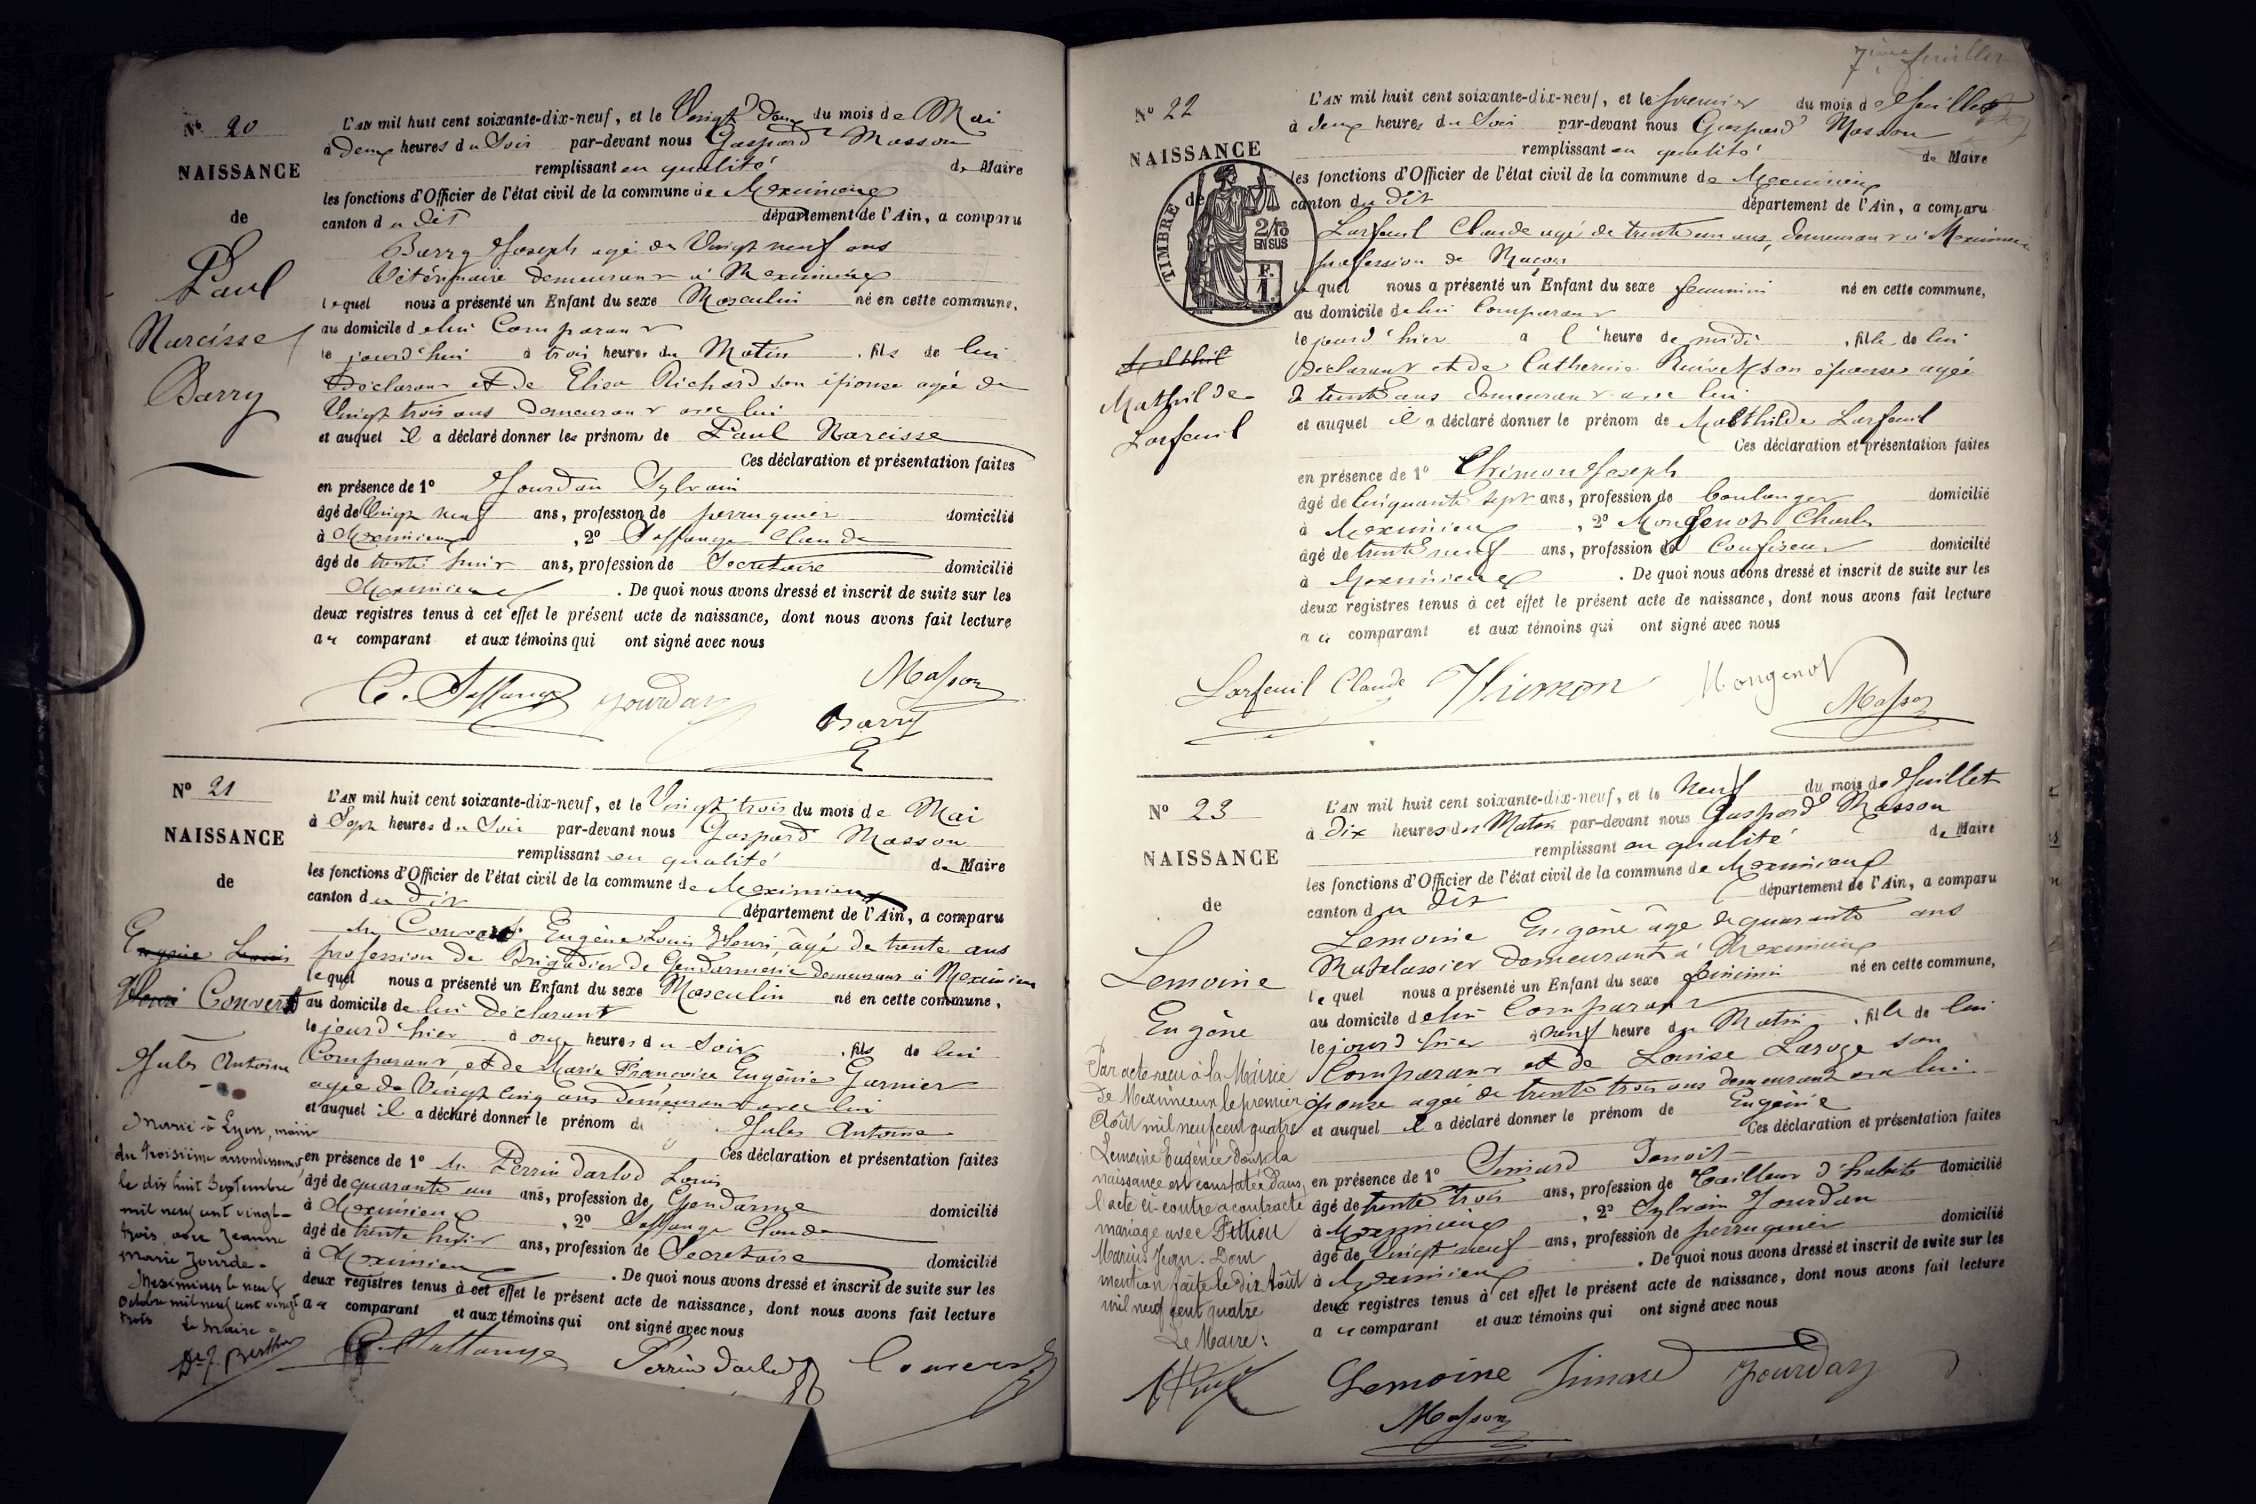 Nº 20
NAISSANCE
de
Paul
Narcisse
Barry
L'AN mil huit cent soixante-dix-neuf, et le Vingt deux du mois de Mai
à deux heures du Soir par-devant nous Gaspard Masson
remplissant en qualité de Maire
les fonctions d'Officier de l'état civil de la commune de Meximieux
canton du dit département de l'Ain, a comparu
Barry Joseph agé de Vingt neuf ans
Vétérinaire demeurant à Meximieux
lequel nous a présenté un Enfant du sexe Masculin né en cette commune,
au domicile de lui Comparant
le jourd'hui à trois heures du Matin, fils de lui
Déclarant et de Elisa Richard son épouse agée de
Vingt trois ans demeurant avec lui
et auquel il a déclaré donner les prénoms de Paul Narcisse
Ces déclaration et présentation faites
en présence de 1º Jourdan Sylvain
âgé de Vingt neuf ans, profession de perruquier domicilié
à Meximieux, 2º Saffange Claude
âgé de trente huit ans, profession de Secretaire domicilié
Meximieux. De quoi nous avons dressé et inscrit de suite sur les
deux registres tenus à cet effet le présent acte de naissance, dont nous avons fait lecture
au comparant et aux témoins qui ont signé avec nous
C. Saffange Jourdan Masson
Barry
Nº 21
NAISSANCE
de
Eugène Louis
Henri Convert
Jules Antoine
L'AN mil huit cent soixante-dix-neuf, et le Vingt trois du mois de Mai
à Sept heures du Soir par-devant nous Gaspard Masson
remplissant en qualité de Maire
les fonctions d'Officier de l'état civil de la commune de Meximieux
canton du dit département de l'Ain, a comparu
Convert Eugène Louis Henri, âgé de trente ans
profession de Brigadier de Gendarmerie demeurant à Meximieux
lequel nous a présenté un Enfant du sexe Masculin né en cette commune,
au domicile de lui déclarant
le jourd'hier à onze heures du Soir, fils de lui
Comparant, et de Marie Françoise Eugénie Garnier
agée de Vingt cinq ans demeurant avec lui
et auquel il a déclaré donner le prénom de Jules Antoine
Ces déclaration et présentation faites
en présence de 1º Perrin Darlod Louis
âgé de quarante un ans, profession de Gendarme domicilié
à Meximieux, 2º Saffange Claude
âgé de trente huit ans, profession de Secretaire domicilié
à Meximieux. De quoi nous avons dressé et inscrit de suite sur les
deux registres tenus à cet effet le présent acte de naissance, dont nous avons fait lecture
au comparant et aux témoins qui ont signé avec nous
C. Saffange Perrin Darlod Convert
Marié à Lyon, mairie
du troisième arrondissement
le dix huit Septembre
mil neuf cent vingt-
trois, avec Jeanne
Marie Jourde.
Meximieux le neuf
Octobre mil neuf cent vingt
trois
Le Maire
Dr J. Berthier
7ième feuillet
Nº 22
NAISSANCE
de
TIMBRE
2/10
EN SUS
F.
1
Mathilde
Lorfeuil
L'AN mil huit cent soixante-dix-neuf, et le premier du mois de Juillet
à deux heures du Soir par-devant nous Gaspard Masson
remplissant en qualité de Maire
les fonctions d'Officier de l'état civil de la commune de Meximieux
canton du dit département de l'Ain, a comparu
Lorfeuil Claude agé de trente un ans, demeurant à Meximieux
profession de Maçon
lequel nous a présenté un Enfant du sexe feminin né en cette commune,
au domicile de lui Comparant
le jourd'hier a l'heure de midi, fille de lui
Déclarant et de Catherine son épouse agée
de trente ans demeurant avec lui
et auquel il a déclaré donner le prénom de Mathilde Lorfeuil
Ces déclaration et présentation faites
en présence de 1º Thimon Joseph
âgé de Cinquante sept ans, profession de boulanger domicilié
à Meximieux, 2º Mongenot Charles
âgé de trente neuf ans, profession de Confiseur domicilié
à Meximieux. De quoi nous avons dressé et inscrit de suite sur les
deux registres tenus à cet effet le présent acte de naissance, dont nous avons fait lecture
au comparant et aux témoins qui ont signé avec nous
Lorfeuil Claude Thimon Mongenot
Masson
Nº 23
NAISSANCE
de
Lemoine
Eugène
L'AN mil huit cent soixante-dix-neuf, et le Neuf du mois de Juillet
à dix heures du Matin par-devant nous Gaspard Masson
remplissant en qualité de Maire
les fonctions d'Officier de l'état civil de la commune de Meximieux
canton du dit département de l'Ain, a comparu
Lemoine Eugène âgé de quarante ans
Matelassier demeurant à Meximieux
lequel nous a présenté un Enfant du sexe féminin né en cette commune,
au domicile de lui Comparant
le jourd'hier à neuf heure du Matin, fille de lui
Comparant et de Louise Laroze son
épouse agée de trente trois ans demeurant avec lui
et auquel il a déclaré donner le prénom de Eugénie
Ces déclaration et présentation faites
en présence de 1º Simard Benoit
âgé de trente trois ans, profession de tailleur d'habits domicilié
à Meximieux, 2º Sylvain Jourdan
âgé de Vingt neuf ans, profession de perruquier domicilié
à Meximieux. De quoi nous avons dressé et inscrit de suite sur les
deux registres tenus à cet effet le présent acte de naissance, dont nous avons fait lecture
au comparant et aux témoins qui ont signé avec nous
Lemoine Simard Jourdan
Masson
Par acte reçu à la Mairie
de Meximieux le premier
Août mil neuf cent quatre
Lemoine Eugénie dont la
naissance est constatée dans
l'acte ci-contre a contracté
mariage avec Pithiou
Marius Jean. Dont
mention faite le dix Août
mil neuf cent quatre
Le Maire: